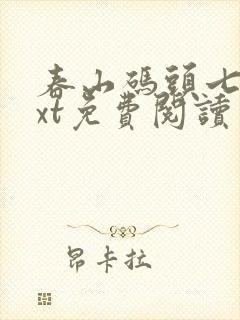 春山碼頭七
xt免費閱讀
昂卡拉